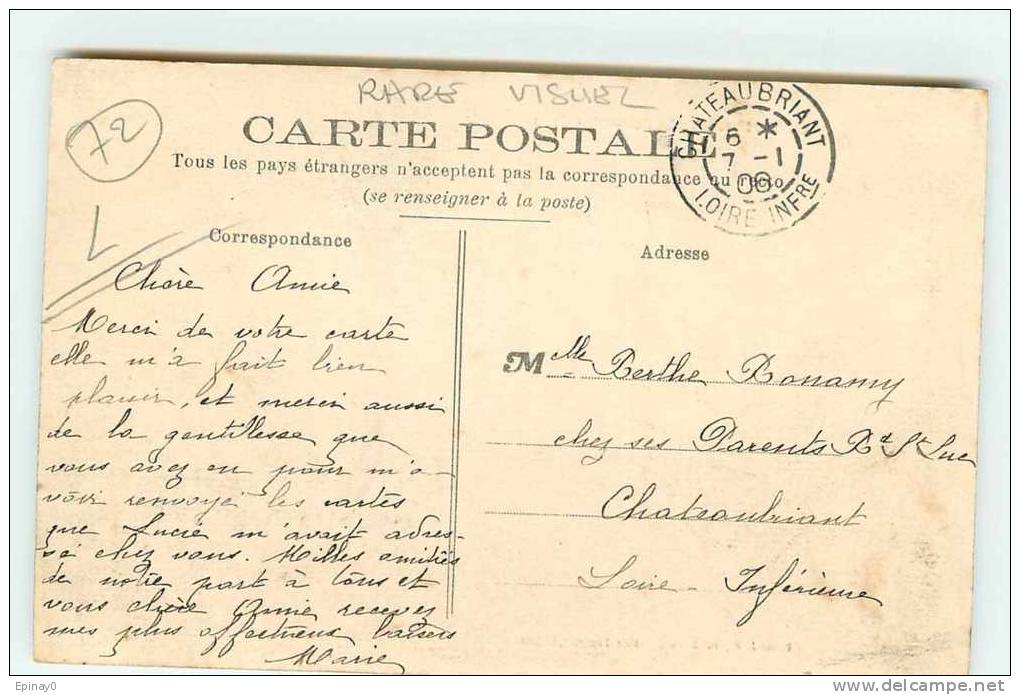 RARE VISUEL
72
CARTE POSTALE
Tous les pays étrangers n'acceptent pas la correspondance au recto
(se renseigner à la poste)
CHATEAUBRIANT
6 *
7 -1
09
LOIRE INFRE
Correspondance
Chère Amie
Merci de votre carte
elle m'a fait bien
plaisir, et merci aussi
de la gentillesse que
vous avez eu pour m'a-
voir renvoyé les cartes
que Lucie m'avait adres-
sé chez vous. Milles amitiés
de notre part à tous et
vous chère Amie recevez
mes plus affectueux baisers
Marie
Adresse
Mlle Berthe Bonamy
chez ses Parents Bd St Luc
Chateaubriant
Loire-Inférieure
Epinay0
www.delcampe.net